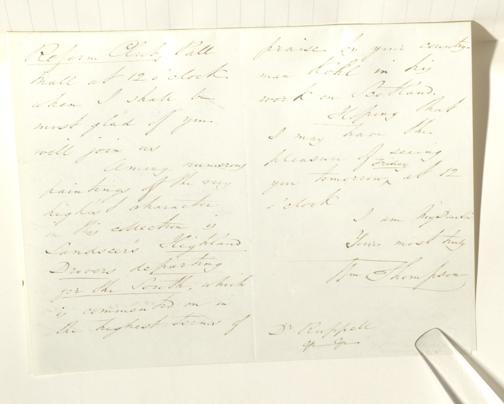 Reform Club, Pall
Mall at 12 o'clock
when I shall be
most glad if you
will join us
Among numerous
paintings of the very
highest character
in this collection is
Landseer's Highland
Drovers departing
for the South, which
is commented on in
the highest terms of
praise by your country-
man Kohl in his
work on Scotland.
Hoping that
I may have the
pleasure of seeing
Friday
you tomorrow at 12
o'clock
I am My dear Sir
Yours most truly
Wm Thompson
Dr Ruppell